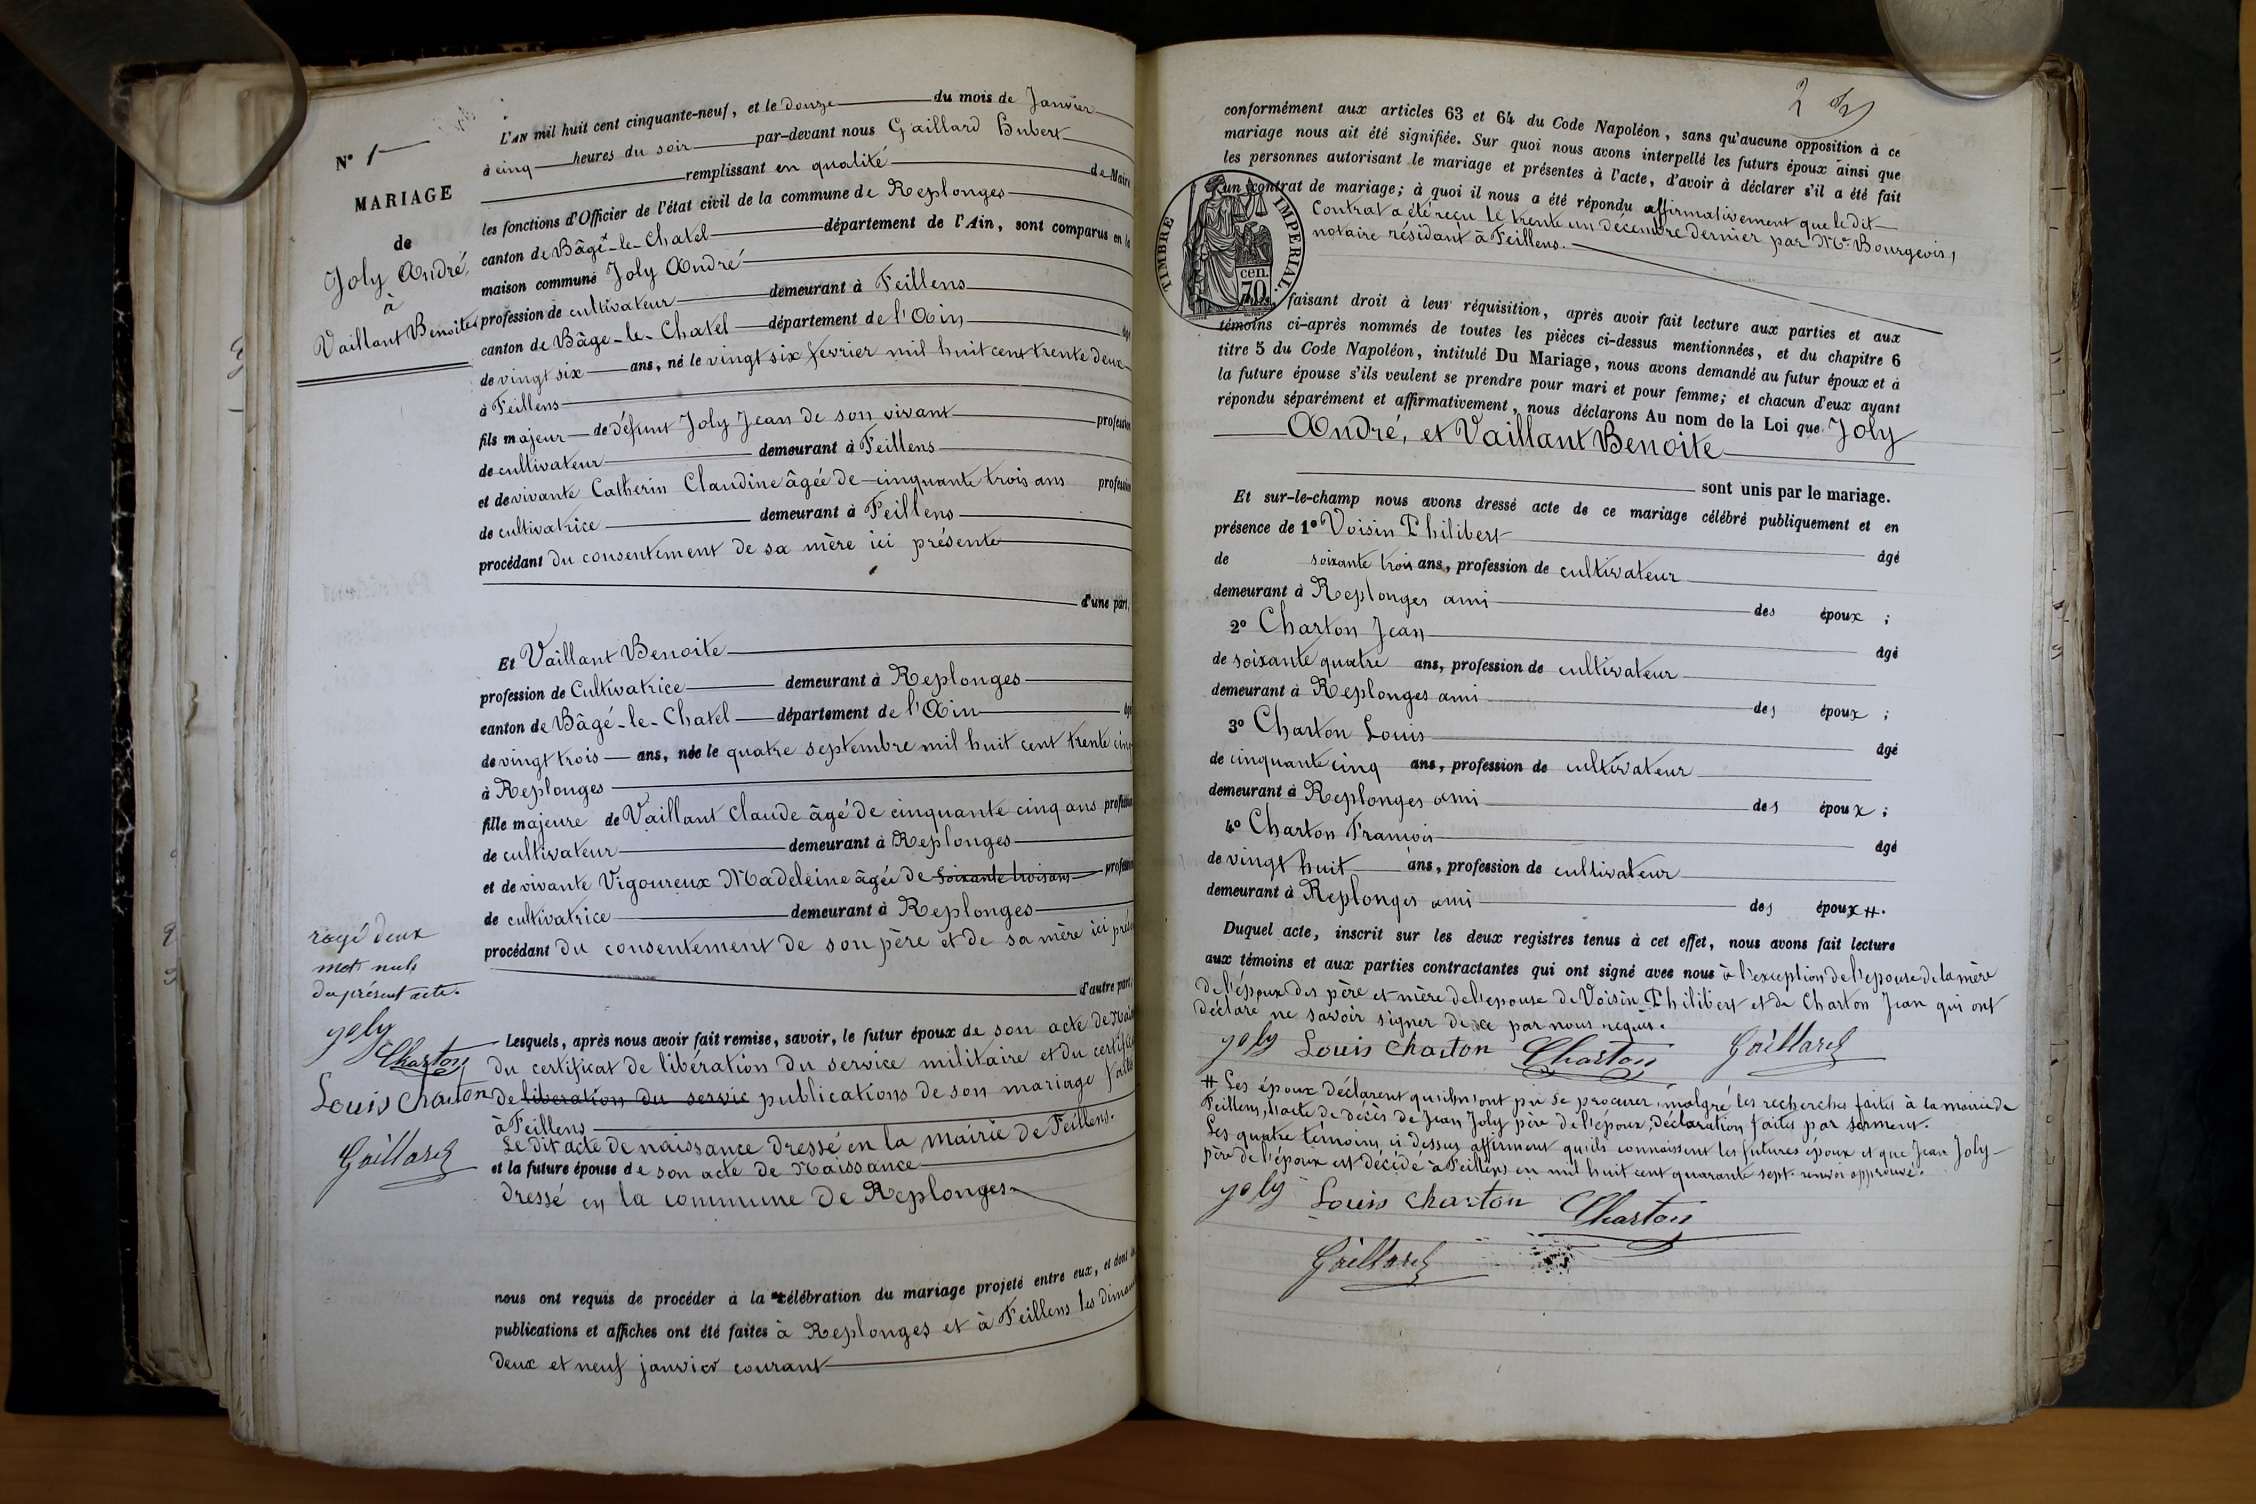 N° 1
MARIAGE
de
Joly André
à
Vaillant Benoite
L'AN mil huit cent cinquante-neuf, et le douze du mois de Janvier
à cinq heures du soir par-devant nous Gaillard Hubert
remplissant en qualité de Maire
les fonctions d'Officier de l'état civil de la commune de Replonges
canton de Bâgé-le-Chatel département de l'Ain, sont comparus en la
maison commune Joly André
profession de cultivateur demeurant à Feillens
canton de Bâge-le-Chatel département de l'Ain âgé
de vingt six ans, né le vingt six fevrier mil huit cent trente deux
à Feillens
fils majeur de défunt Joly Jean de son vivant profession
de cultivateur demeurant à Feillens
et de vivante Catherin Claudine âgée de cinquante trois ans profession
de cultivatrice demeurant à Feillens
procédant du consentement de sa mère ici présente
d'une part,
Et Vaillant Benoite
profession de Cultivatrice demeurant à Replonges
canton de Bâgé-le-Chatel département de l'Ain âgé
de vingt trois ans, née le quatre septembre mil huit cent trente cinq
à Replonges
fille majeure de Vaillant Claude âgé de cinquante cinq ans profession
de cultivateur demeurant à Replonges
et de vivante Vigoureux Madeleine âgée de soixante trois ans profession
de cultivatrice demeurant à Replonges
procédant du consentement de son père et de sa mère ici prés
d'autre part,
rayé deux
mots nuls
du présent acte.
Joly
Charton
Louis Charton
Gaillard
Lesquels, après nous avoir fait remise, savoir, le futur époux de son acte de Nais
du certificat de libération du service militaire et du certificat
de liberation du servic publications de son mariage faites
à Feillens
Le dit acte de naissance dressé en la mairie de Feillens.
et la future épouse de son acte de Naissance
dressé en la commune de Replonges
nous ont requis de procéder à la célébration du mariage projeté entre eux, et dont les
publications et affiches ont été faites à Replonges et à Feillens les diman
deux et neuf janvier courant
2
conformément aux articles 63 et 64 du Code Napoléon, sans qu'aucune opposition à ce
mariage nous ait été signifiée. Sur quoi nous avons interpellé les futurs époux ainsi que
les personnes autorisant le mariage et présentes à l'acte, d'avoir à déclarer s'il a été fait
un contrat de mariage; à quoi il nous a été répondu affirmativement que le dit
Contrat a été reçu le trente un décembre dernier par Me Bourgeois,
notaire résidant à Feillens.
TIMBRE IMPERIAL
70 cen.
faisant droit à leur réquisition, après avoir fait lecture aux parties et aux
témoins ci-après nommés de toutes les pièces ci-dessus mentionnées, et du chapitre 6
titre 5 du Code Napoléon, intitulé Du Mariage, nous avons demandé au futur époux et à
la future épouse s'ils veulent se prendre pour mari et pour femme; et chacun d'eux ayant
répondu séparément et affirmativement, nous déclarons Au nom de la Loi que Joly
André, et Vaillant Benoite
sont unis par le mariage.
Et sur-le-champ nous avons dressé acte de ce mariage célébré publiquement et en
présence de 1° Voisin Philibert âgé
de soixante trois ans, profession de cultivateur
demeurant à Replonges ami des époux ;
2° Charton Jean âgé
de soixante quatre ans, profession de cultivateur
demeurant à Replonges ami des époux ;
3° Charton Louis âgé
de cinquante cinq ans, profession de cultivateur
demeurant à Replonges ami des époux ;
4° Charton François âgé
de vingt huit ans, profession de cultivateur
demeurant à Replonges ami des époux #.
Duquel acte, inscrit sur les deux registres tenus à cet effet, nous avons fait lecture
aux témoins et aux parties contractantes qui ont signé avec nous à l'exception de l'epouse de la mère
de l'époux des père et mère de l'epouse de Voisin Philibert et de Charton Jean qui ont
déclaré ne savoir signer de ce par nous requis.
Joly Louis Charton Charton Gaillard
# Les époux déclarent qu'ils n'ont pu se procurer, malgré les recherches faites à la mairie de
Feillens, l'acte de décès de Jean Joly père de l'époux, Déclaration faites par serment.
Les quatre témoins ci dessus affirment qu'ils connaissent les futures époux et que Jean Joly
père de l'époux est décédé à Feillens en mil huit cent quarante sept. renvoi approuvé.
Joly Louis Charton Charton
Gaillard